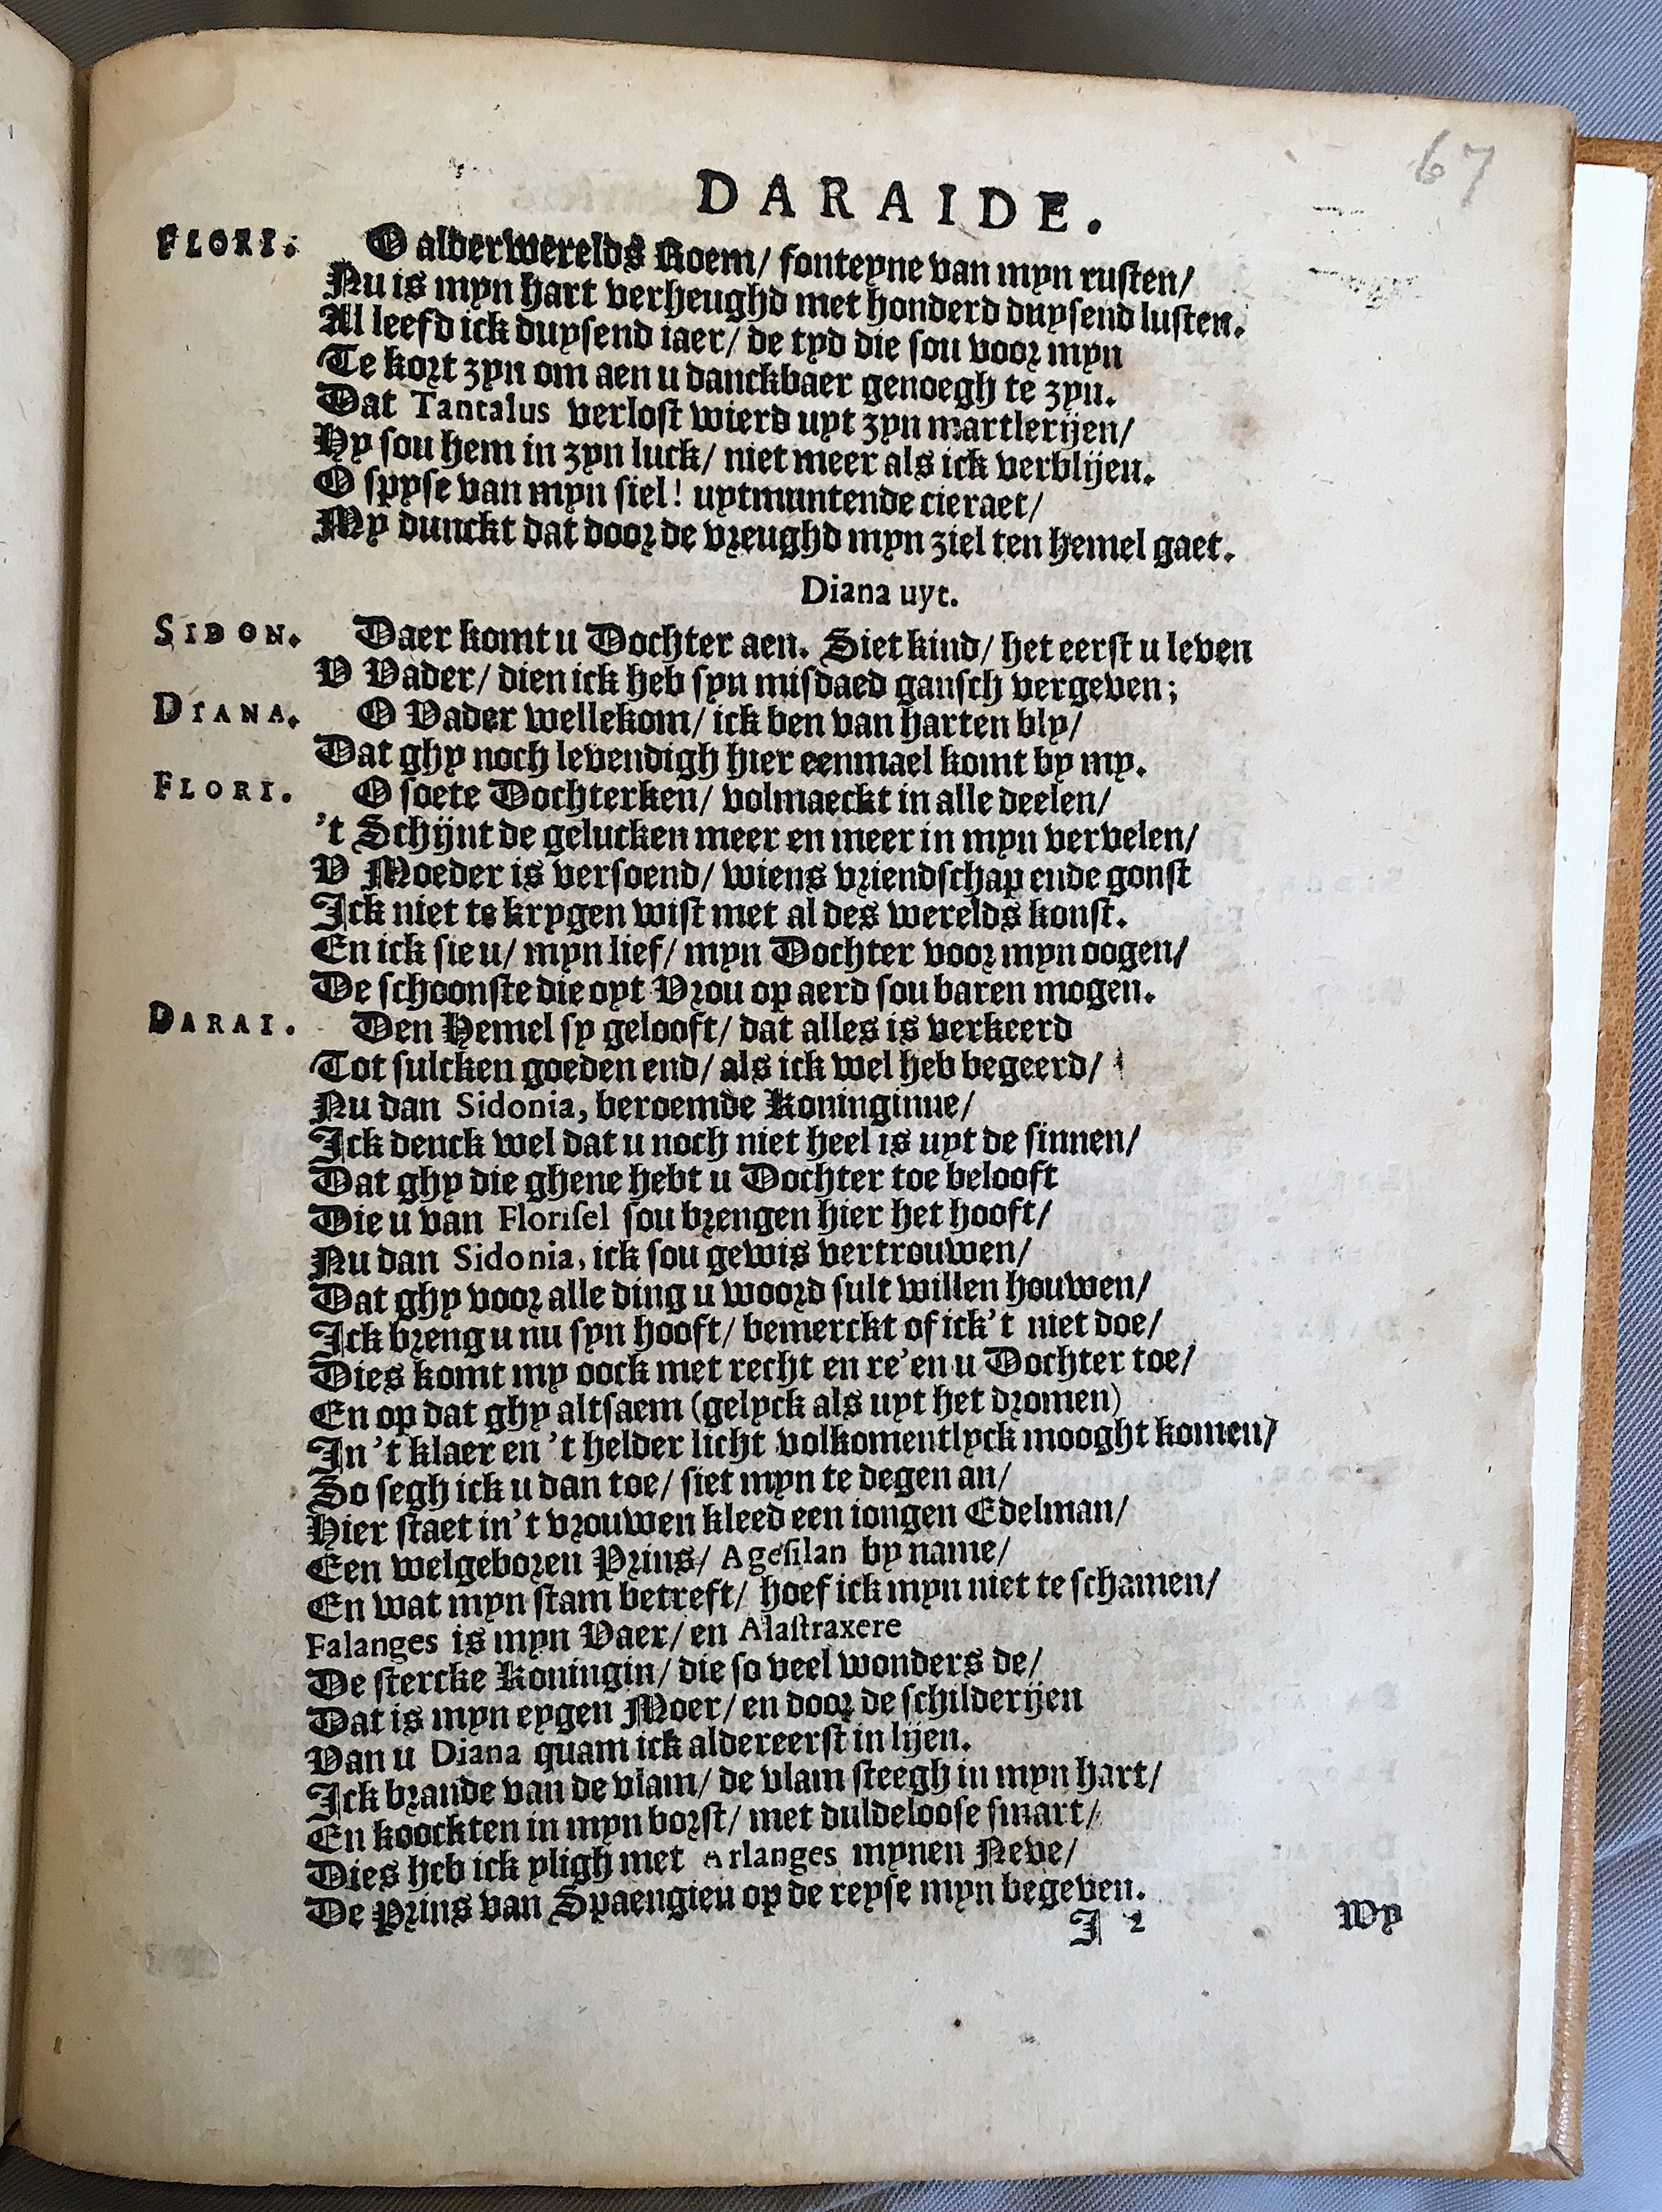 67
DARAIDE.
FLORI. O alderwerelds Roem/ fonteyne van myn rusten/
Nu is myn hart verheughd met honderd duysend lusten.
Al leefd ick duysend iaer/ de tyd die sou voor myn
Te kort zyn om aen u danckbaer genoegh te zyn.
Dat Tantalus verlost wierd uyt zyn martlerijen/
Hy sou hem in zyn luck/ niet meer als ick verblijen.
O spyse van myn siel! uytmuntende cieraet/
My dunckt dat door de vreughd myn ziel ten hemel gaet.
Diana uyt.
SIDON. Daer komt u Dochter aen. Siet kind/ het eerst u leven
V Vader/ dien ick heb syn misdaed gansch vergeven;
DIANA. O Vader wellekom/ ick ben van harten bly/
Dat ghy noch levendigh hier eenmael komt by my.
FLORI. O soete Dochterken/ volmaeckt in alle deelen/
't Schijnt de gelucken meer en meer in myn vervelen/
V Moeder is versoend/ wiens vriendschap ende gonst
Ick niet te krygen wist met al des werelds konst.
En ick sie u/ myn lief/ myn Dochter voor myn oogen/
De schoonste die oyt Vrou op aerd sou baren mogen.
DARAI. Den Hemel sy gelooft/ dat alles is verkeerd
Tot sulcken goeden end/ als ick wel heb begeerd/
Nu dan Sidonia, beroemde Koninginne/
Ick denck wel dat u noch niet heel is uyt de sinnen/
Dat ghy die ghene hebt u Dochter toe belooft
Die u van Florisel sou brengen hier het hooft/
Nu dan Sidonia, ick sou gewis vertrouwen/
Dat ghy voor alle ding u woord sult willen houwen/
Ick breng u nu syn hooft/ bemerckt of ick't niet doe/
Dies komt my oock met recht en re'en u Dochter toe/
En op dat ghy altsaem (gelyck als uyt het dromen)
In 't klaer en 't helder licht volkomentlyck mooght komen/
So segh ick u dan toe/ siet myn te degen an/
Hier staet in't vrouwen kleed een iongen Edelman/
Een welgeboren Prins/ Agesilan by name/
En wat myn stam betreft/ hoef ick myn niet te schamen/
Falanges is myn Vaer/ en Alastraxere
De stercke Koningin/ die so veel wonders de/
Dat is myn eygen Moer/ en door de schilderijen
Van u Diana quam ick aldereerst in lijen.
Ick brande van de vlam/ de vlam steegh in myn hart/
En koockten in myn borst/ met duldeloose smart/
Dies heb ick yligh met Arlanges mynen Neve/
De Prins van Spaengien op de reyse myn begeven.
I 2 Wy